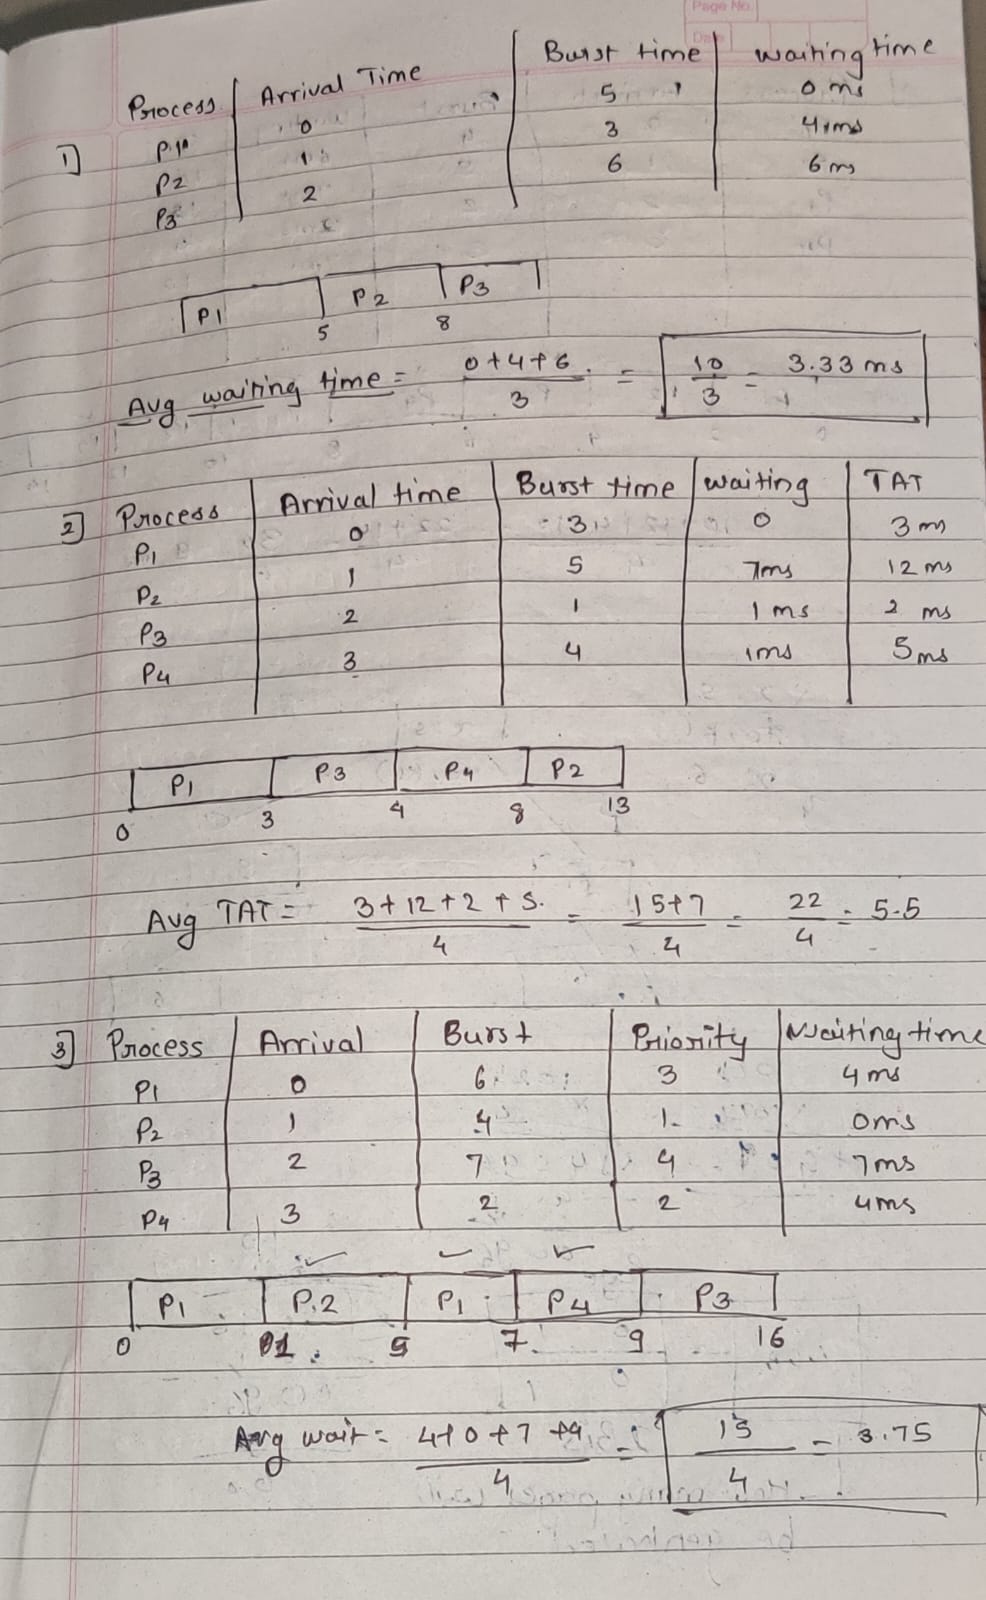 Page No.
Date
Process Arrival Time Burst time waiting time
1] P1 0 5 0 ms
P2 1 3 4 ms
P3 2 6 6 ms
P1 P2 P3
5 8
Avg waiting time = 0+4+6 / 3 = 10 / 3 = 3.33 ms
2] Process Arrival time Burst time waiting TAT
P1 0 3 0 3 ms
P2 1 5 7ms 12 ms
P3 2 1 1 ms 2 ms
P4 3 4 1ms 5ms
P1 P3 P4 P2
0 3 4 8 13
Avg TAT = 3+12+2+5. / 4 = 15+7 / 4 = 22 / 4 = 5.5
3] Process Arrival Burst Priority Waiting time
P1 0 6 3 4 ms
P2 1 4 1 0ms
P3 2 7 4 7ms
P4 3 2 2 4ms
P1 P2 P1 P4 P3
0 1 5 7 9 16
Avg wait = 4+0+7+4 / 4 = 15 / 4 = 3.75